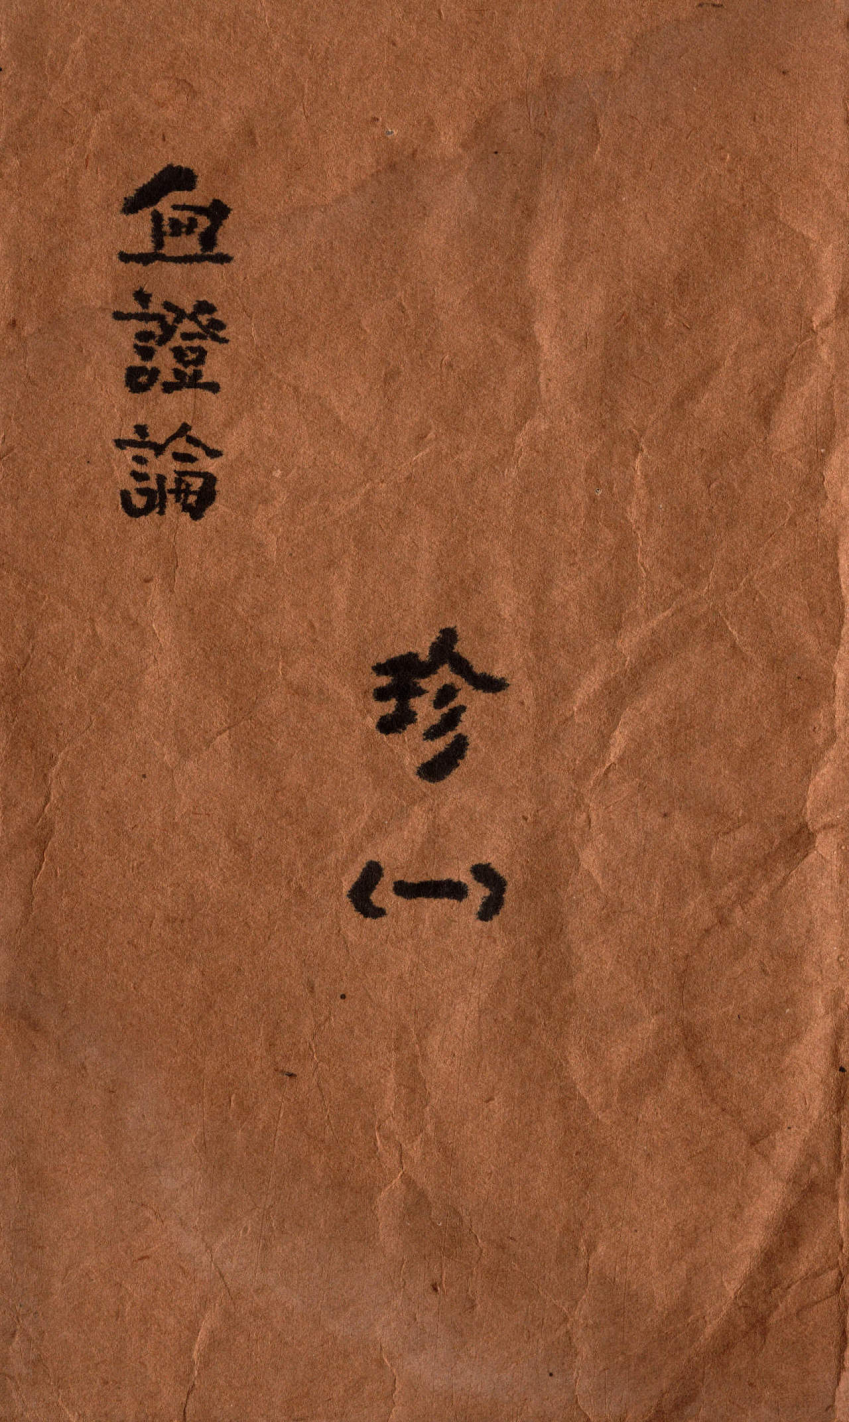 血證論
珍
(一)